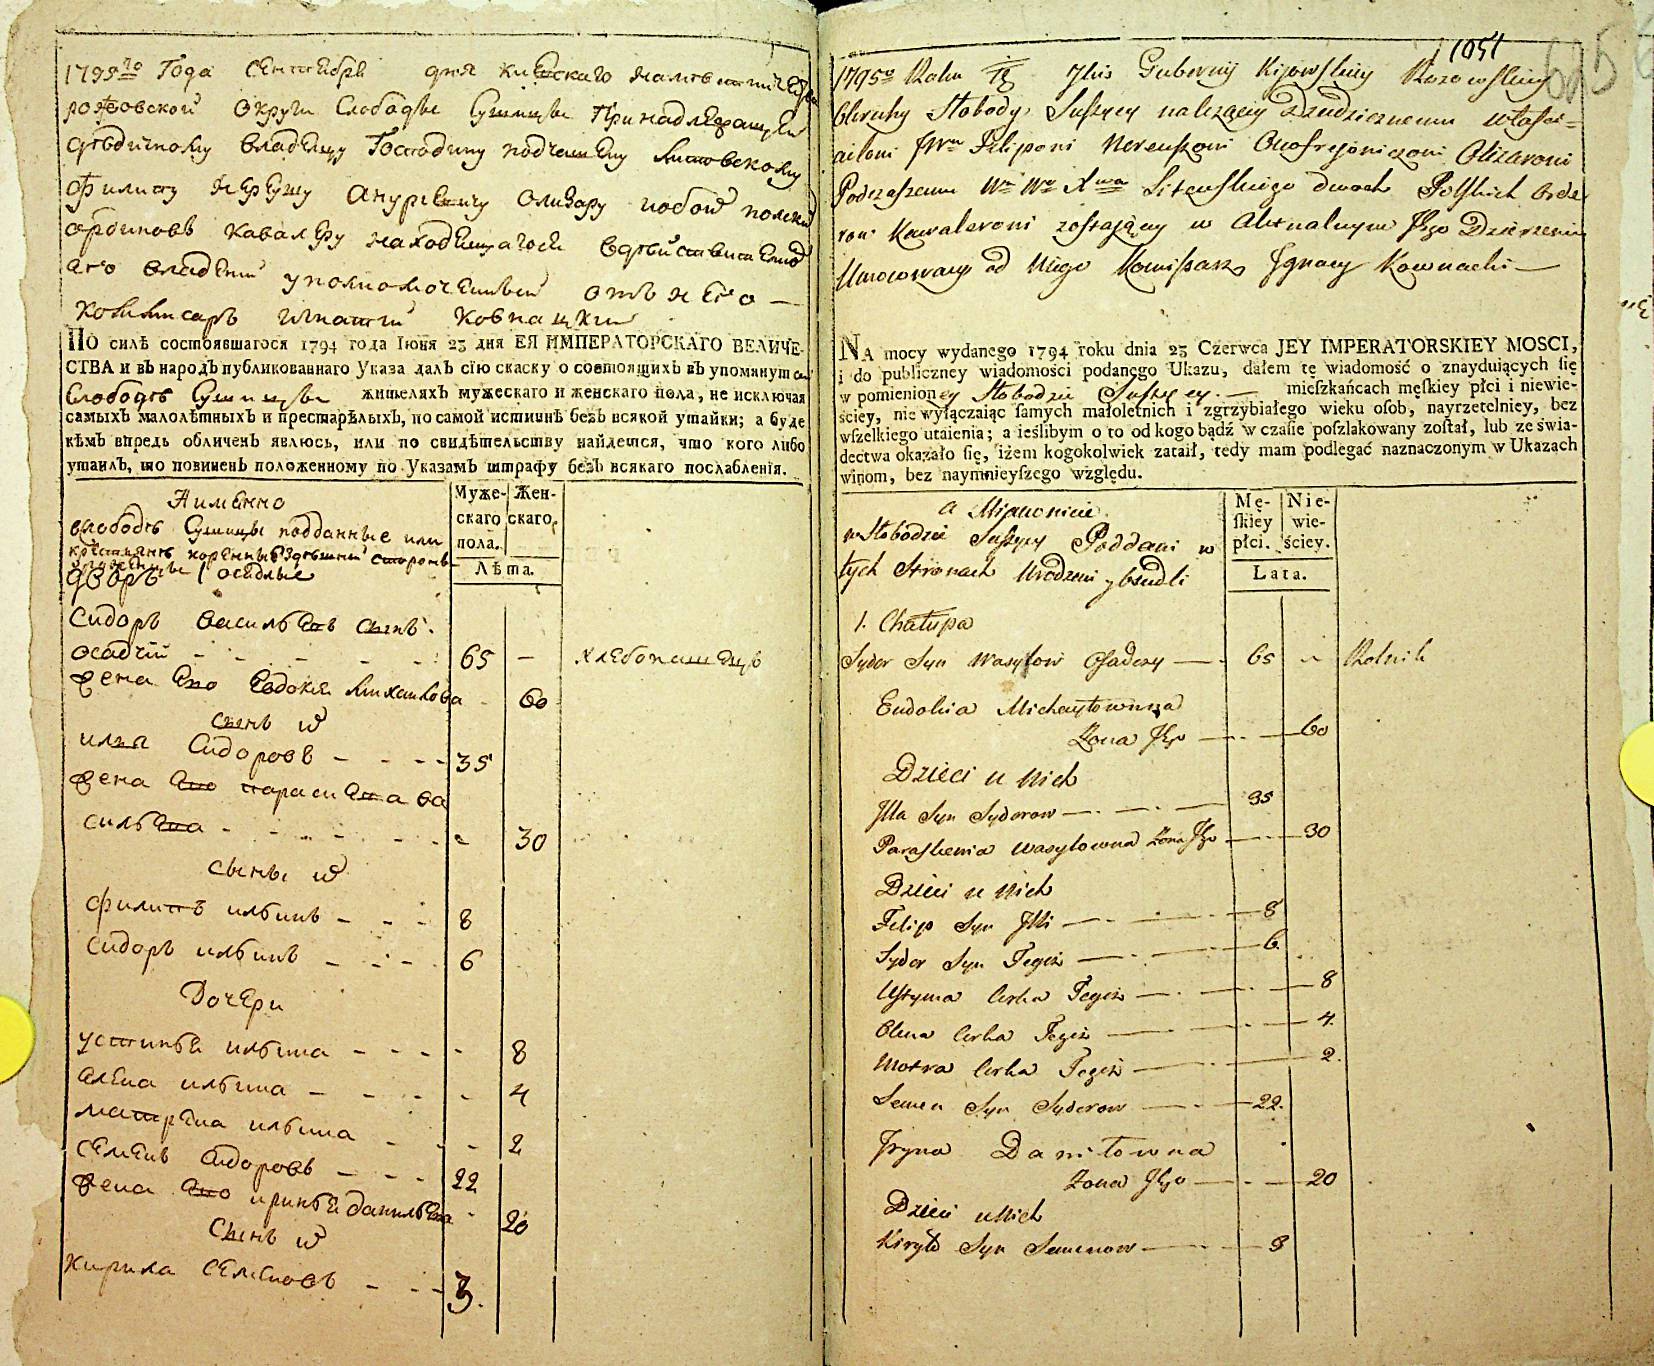 1795го Года Сентебря дня Киевского наместничества
рожовской округи Слободы Сушицы принадлежащей
дедичному владельцу Господину подчашему Литовскому
Филипу Нерушу Ануфреичу Олизару обоих польских
орденовъ кавалеру находещагося вдействителном
его владении уполномоченный отъ него —
коммисаръ игнатий Ковнацкий
ПО силѣ состоявшагося 1794 года Іюня 23 дня ЕЯ ИМПЕРАТОРСКАГО ВЕЛИЧЕ-
СТВА и въ народъ публикованнаго Указа далъ сію скаску о состоящихъ въ упомянутой
Слободѣ Сушицы жителяхъ мужескаго и женскаго пола, не исключая
самыхъ малолѣтныхъ и престарѣлыхъ, по самой истиннѣ безъ всякой утайки; а буде
кѣмъ впредь обличенъ явлюсь, или по свидѣтельству найдется, что кого либо
утаилъ, то повиненъ положенному по Указамъ штрафу безъ всякаго послабленія.
Аименно
слободѣ Сушицы подданные или
крестьянѣ коренные здешний стороны
уроженцы и оседлые
дворъ 1
Муже-
скаго
пола.
Жен-
скаго.
Лѣта.
Сидоръ васильевъ сынъ
осадчий - - - - - 65 — хлебопашецъ
жена ево Евдокея михаилова - 60
сынъ их
илья Сидоровъ - - - - 35
жена ево парасиева ва
сильева - - - - - 30
сыны их
филипъ ильинъ - - - 8
сидоръ ильинъ - - - 6
Дочери
устинья ильина - - - - 8
алена ильина - - - - 4
матрена ильина - - - 2
семенъ сидоровъ - - - 22
жена ево иринья данильева - 20
Сынъ их
кирила семеновъ - - - 3.
1051
625
1795o Roku dnia Gubernij Kijowskiey Rozowskiey
Okruhy Słobody Suszycy należącey Dziedzicznemu właści=
cielowi JWu Filiponi Nereuszowi Onofrejowiczowi Olizarowi
Podczaszemu Wu Wo Xwa Litewskiego dwoch Polskich Orde
row Kawalerowi zostaiącey w Aktualnym Jego Dzierżeniu
Umocowany od Niego Komisarz Jgnacy Kownacki —
NA mocy wydanego 1794 roku dnia 23 Czerwca JEY IMPERATORSKIEY MOSCI,
i do publiczney wiadomości podanego Ukazu, dałem tę wiadomość o znayduiących się
w pomienioney Słobodzie Suszycy. — mieszkańcach męskiey płci i niewie-
ściey, nie wyłączaiąc samych małoletnich i zgrzybiałego wieku osob, nayrzetelniey, bez
wszelkiego utaienia; a ieślibym o to od kogo bądź w czasie poszlakowany został, lub ze świa-
dectwa okazało się, iżem kogokolwiek zataił, tedy mam podlegać naznaczonym w Ukazach
winom, bez naymnieyszego względu.
a Mianowicie
w Słobodzie Suszycy Poddani w
tych Stronach Urodzeni y osiedli
Mę-
skiey
płci.
Nie-
wie-
ściey.
Lata.
1. Chałupa
Sydor Syn Wasylow Osadczy — 65 — Rolnik
Eudokia Michayłowna
Zona Jego — 60
Dzieci u Nich
Jlla Syn Sydorow — 35
Paraskewia Wasylowna Zona Jego — 30
Dzieci u Nich
Felip Syn Jlli — 8
Sydor Syn Tegoż — 6.
Ustyma Corka Tegoż — 8
Olena Corka Tegoż — 4.
Motra Corka Tegoż — 2.
Semen Syn Syderow — 22.
Jryna Daniłowna
Zona Jego — 20
Dzieci u Nich
Kiryło Syn Semenow — 3